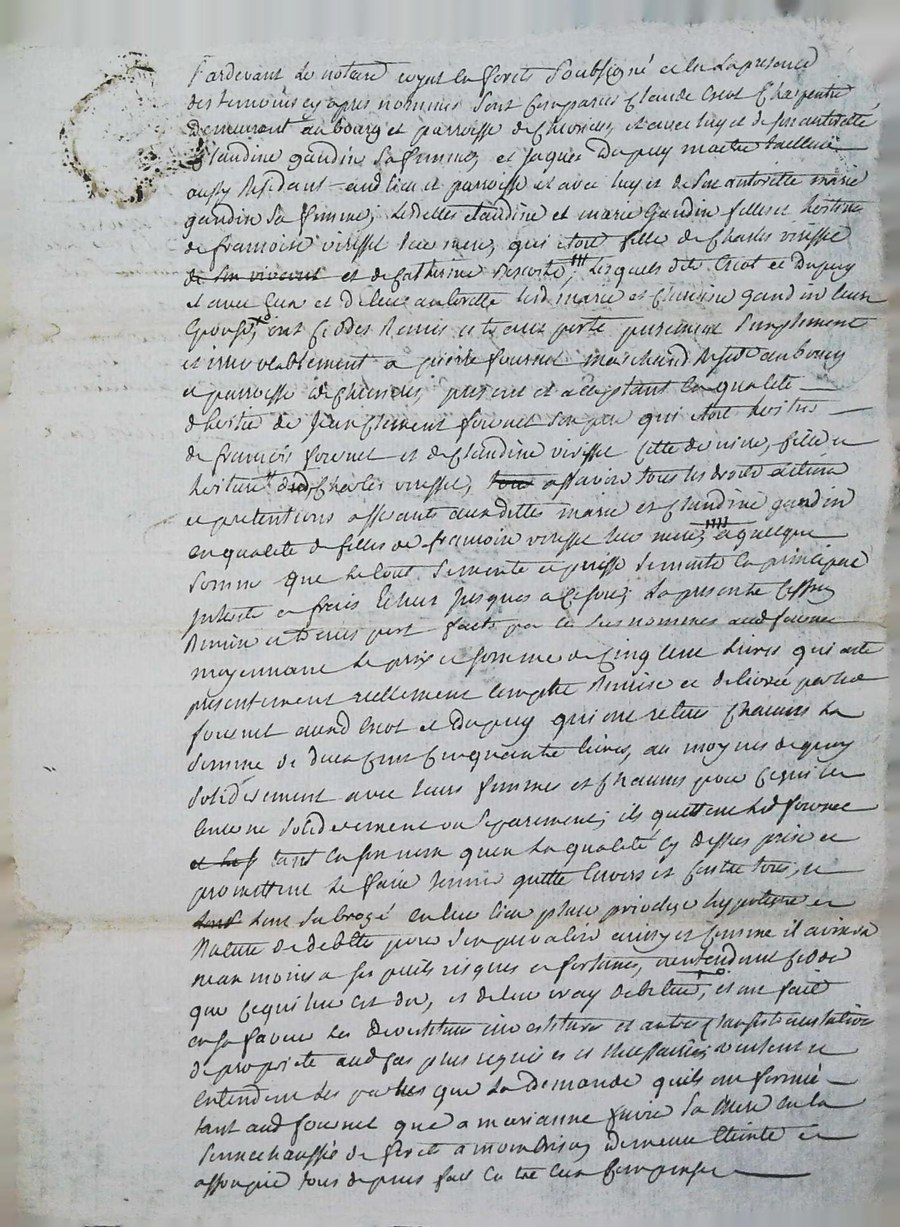 Pardevant le notaire royal en forets soubsigné et en la presence
des temoins cy apres nommes sont comparus Claude Crot Charpentier
demeurant au bourg et parroisse de et avec luy et de son autorité
Claudine gaudin sa femme, et Jaques Dupuy maitre tailleur
aussy residant audlieu et parroisse et avec luy et de son autorette marie
gaudin sa femme, lesdettes claudine et marie Gaudin filles et heritieres
de francoise virisse leur mere, qui etoit fille de Charles virisse
de son vivant et de Catherine lesquels dits Crot et Dupuy
et avec eux et de leur autorette lesd marie et Claudine gaudin leurs
Epouses, ont Cedés Remis et transporté purement Simplement
et irrevocablement a pierre fournet marchand au bourg
et parroisse de present et acceptant en qualité
d'heritier de Jean Clement fournet son pere qui etoit heritier
de francois fournet et de Claudine virisse cette derniere, fille et
heritiere dud Charles virisse, assavoir tous les droits actions
et pretentions afferants auxdittes marie et Claudine gaudin
en qualité de filles de francoise virisse leur mere, a quelque
somme que le tout se monte et puisse se monter en principal
interets et frais Echus jusques a ce jour, la presente Cession
Remise et transport faite par les susnommes aud fournet
moyennant le prix et somme de Cinq Cent livres qui a eté
presentement reellement comptée Remise et delivrée par led
fournet auxd Crot et Dupuy qui ont retiré Chacuns la
somme de deux Cent Cinquante livres, au moyens de quoy
solidairement avec leurs femmes et Chacuns pour ce qui les
concerne solidairement ou separement, ils quittent led fournet
tant en son nom qu'en la qualité cy dessus prise et
promettent le faire tenir quitte Envers et Contre tous, et
l'ont subrogé en leur lieu place privilege hypoteque et
Nature de debtte pour s'en prevaloir ainsy et comme il avisera
neanmoins a ses perils risques et fortunes, n'entendant ceder
que ce qui leur est du, et de leur vray debiteur, et ont fait
en sa faveur les devestitures investitures et autres Clauses translative
de proprieté aud cas plus requises et necessaires, veulent et
entendent les parties que la demande quils ont formé
tant aud fournet que a marianne favre sa mere en la
sennechaussée de forets a montbrison demeure Eteinte et
assoupie tous depens fait entre eux compensés